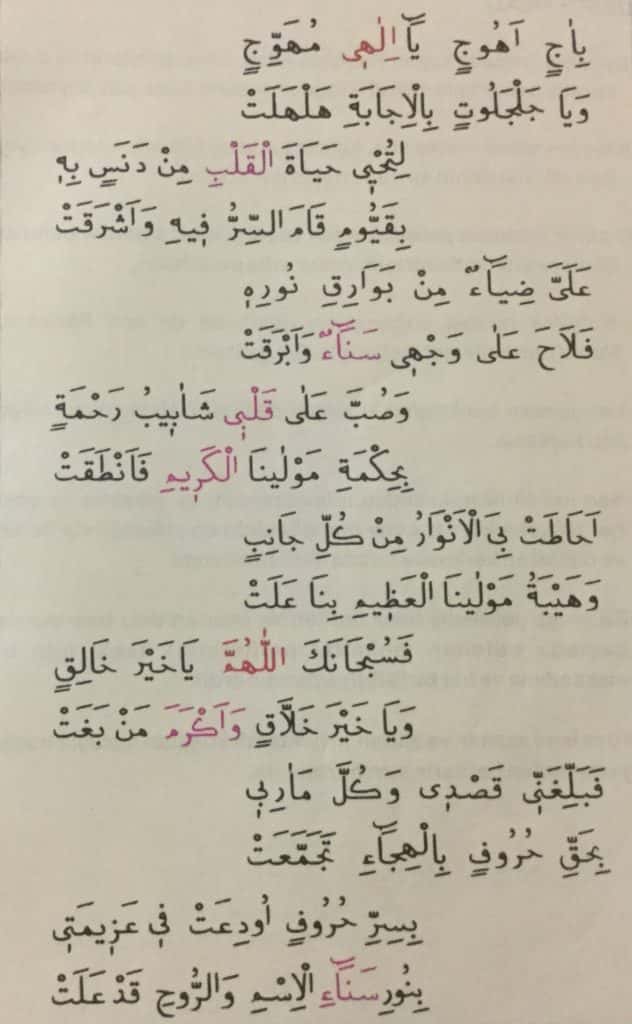 بِاٰجٍ اَهُوجٍ يَٓا اِلٰهٖى مُهَوِّجٍ
وَيَا جَلْجَلُوتٍ بِالْاِجَابَةِ هَلْهَلَتْ
لِتُحْيٖى حَيَاةَ الْقَلْبِ مِنْ دَنَسٍ بِهٖ
بِقَيُّومٍ قَامَ السِّرُّ فٖيهِ وَاَشْرَقَتْ
عَلَىَّ ضِيَٓاءٌ مِنْ بَوَارِقِ نُورِهٖ
فَلَاحَ عَلٰى وَجْهٖى سَنَٓاءٌ وَاَبْرَقَتْ
وَصُبَّ عَلٰى قَلْبٖى شَاٰبٖيبُ رَحْمَةٍ
بِحِكْمَةِ مَوْلٰينَا الْكَرٖيمِ فَاَنْطَقَتْ
اَحَاطَتْ بِىَ الْاَنْوَارُ مِنْ كُلِّ جَانِبٍ
وَهَيْبَةُ مَوْلٰينَا الْعَظٖيمِ بِنَا عَلَتْ
فَسُبْحَانَكَ اللّٰهُمَّ يَاخَيْرَ خَالِقٍ
وَيَا خَيْرَ خَلَّاقٍ وَاَكْرَمَ مَنْ بَغَتْ
فَبَلِّغْنٖى قَصْدٖى وَكُلَّ مَاٰرِبٖى
بِحَقِّ حُرُوفٍ بِالْهِجَٓاءِ تَجَمَّعَتْ
بِسِرِّ حُرُوفٍ اُودِعَتْ فٖى عَزٖيمَتٖى
بِنُورِ سَنَٓاءِ الْاِسْمِ وَالرُّوحِ قَدْ عَلَتْ